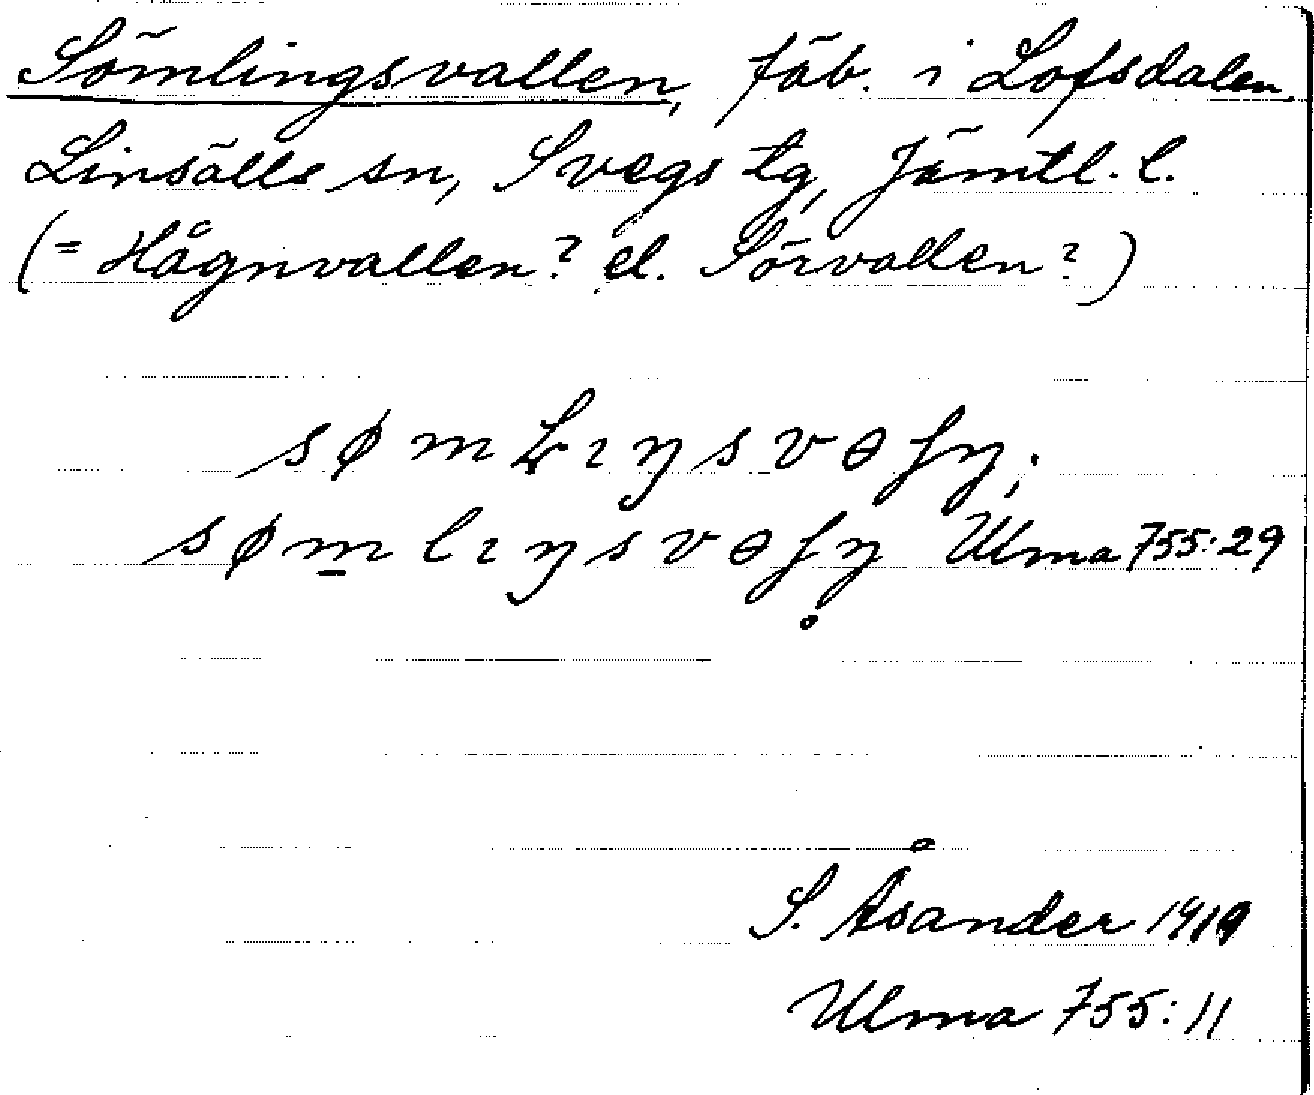 Sömlingsvallen, fäb. i Lofsdalen,
Linsälls sn, Svegs tg, Jämtl. l.
(= Hågnvallen? el. Sörvallen?)
Ulma 755:29
S. Åsander 1919
Ulma 755:11